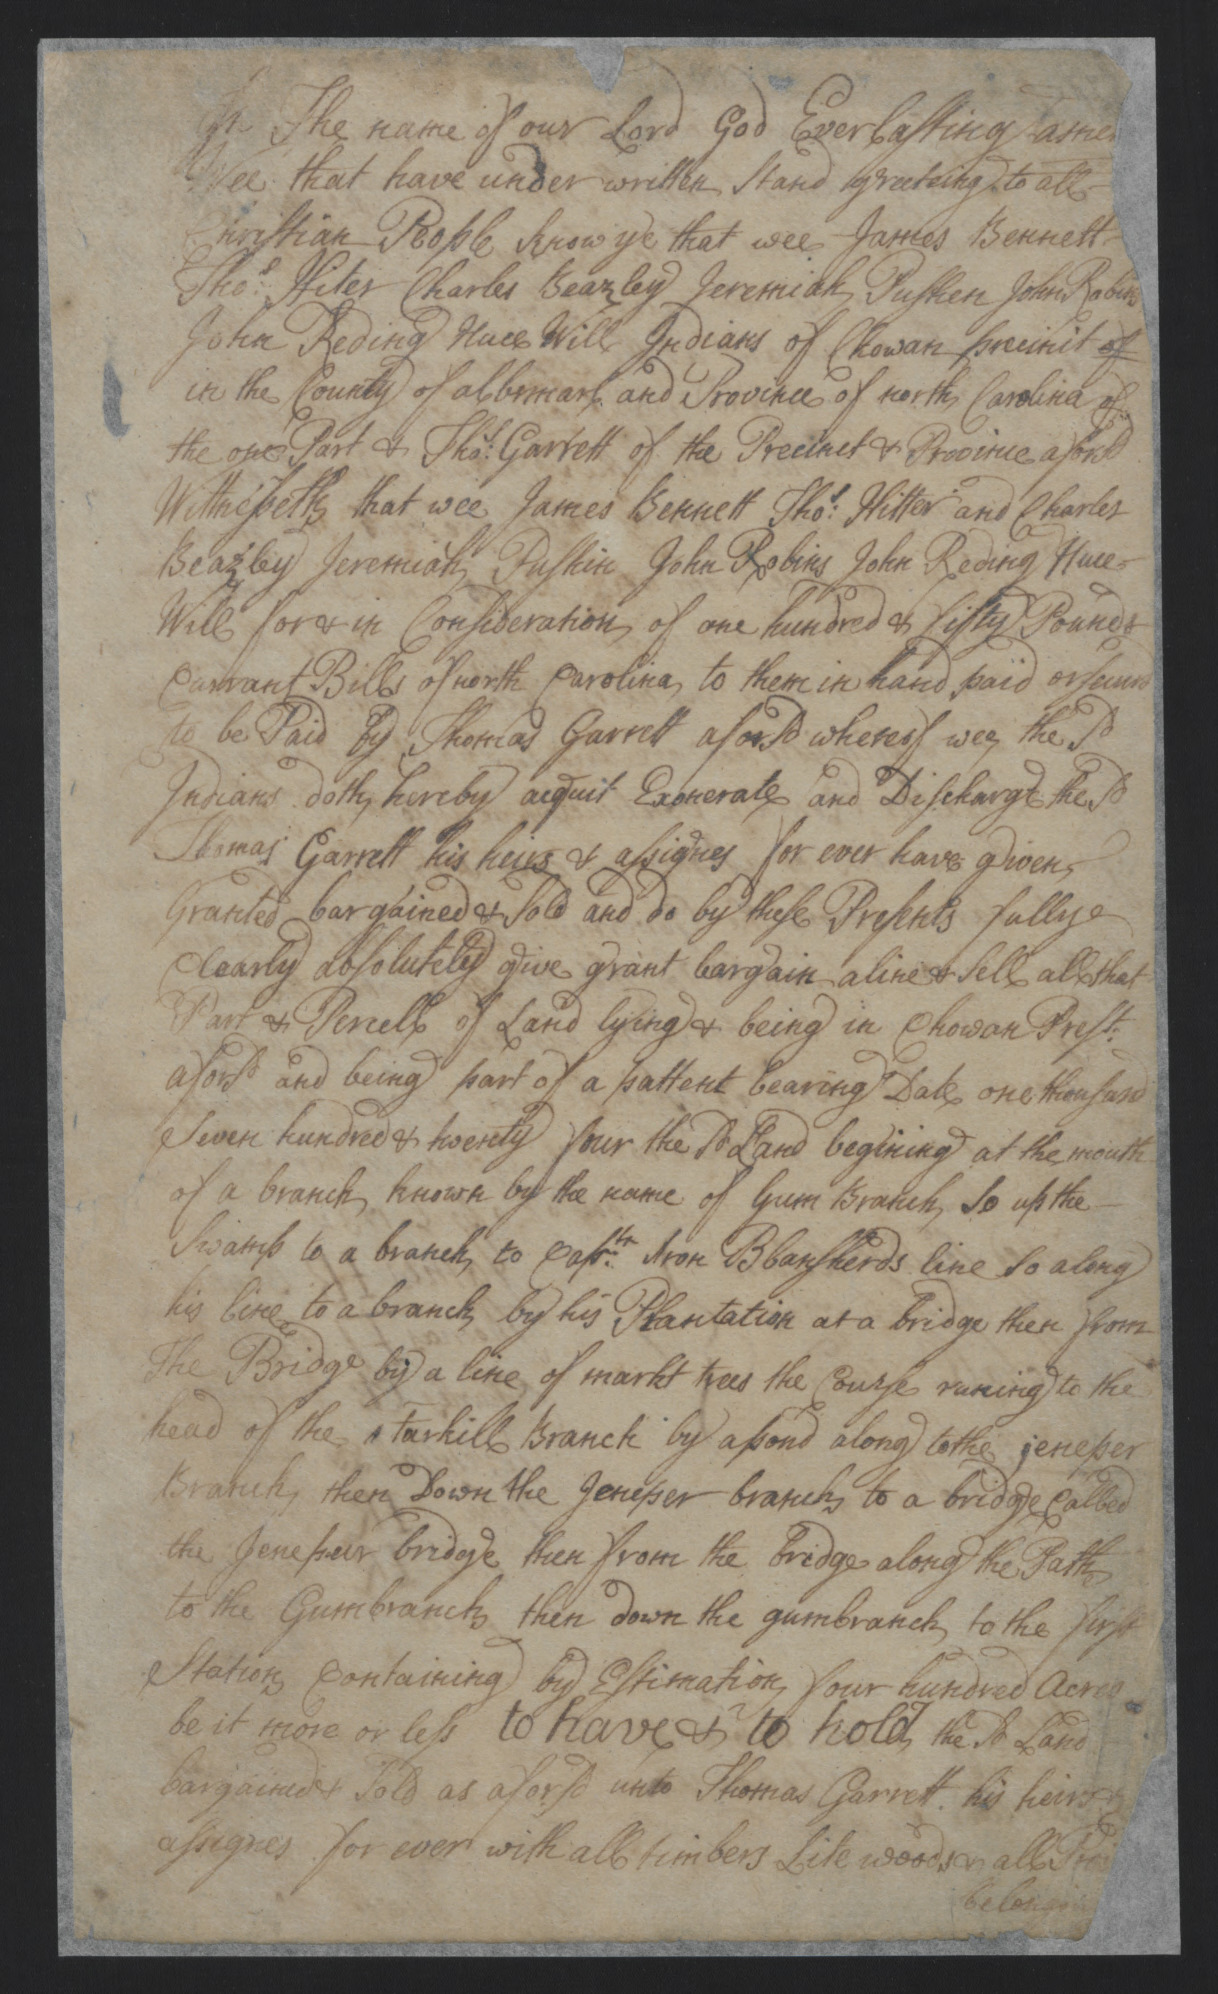 In The name of our Lord God Everlasting amen
Wee that have under written Stand greeteing to all
Christian People know ye that wee James Bennett
Thos: Hiter Charles Beazley Jeremiah Pushen John Robins
John Reding Nuce Will Indians of Chowan precinit of
in the County of albemarl and Province of north Carolina of
the one Part & Thos: Garrett of the Precinct & Province aforsd
Wittnesseth that wee James Bennett Thos: Hitter and Charles
Beazley Jeremiah Pushin John Robins John Reding Nuce
Will for & in Consideration of one hundred & fifty Pounds
Currant Bills of north Carolina to them in hand paid or secured
to be Paid by Thomas Garrett aforsd whereof wee the sd
Indians doth hereby acquit Exonerate and Discharge the sd
Thomas Garrett his heirs & assignes for ever have given
Granted bargained & Sold and do by these Presents fully
Clearly absolutely give grant bargain aline & Sell all that
Part & Percell of Land lying & being in Chowan Prest:
aforsd and being part of a pattent bearing Date one thousand
Seven hundred & twenty four the sd Land begining at the mouth
of a branch known by the name of Gum Branch So up the
Swamp to a branch to Captn: Aron Blansherds line So along
his line to a branch by his Plantation at a bridge then from
The Bridge by a line of markt trees the Course runing to the
head of the Tarkill Branch by a pond along to the jeneper
Branch then Down the Jeneper branch to a bridge Called
the Jeneper bridge then from the bridge along the Path
to the Gumbranch then down the gumbranch to the first
Station Containing by Estimation four hundred Acres
be it more or less to have & to hold the sd Land
bargained & Sold as aforsd unto Thomas Garrett his heirs &
assignes for ever with all timbers Lite woods & all
belonging